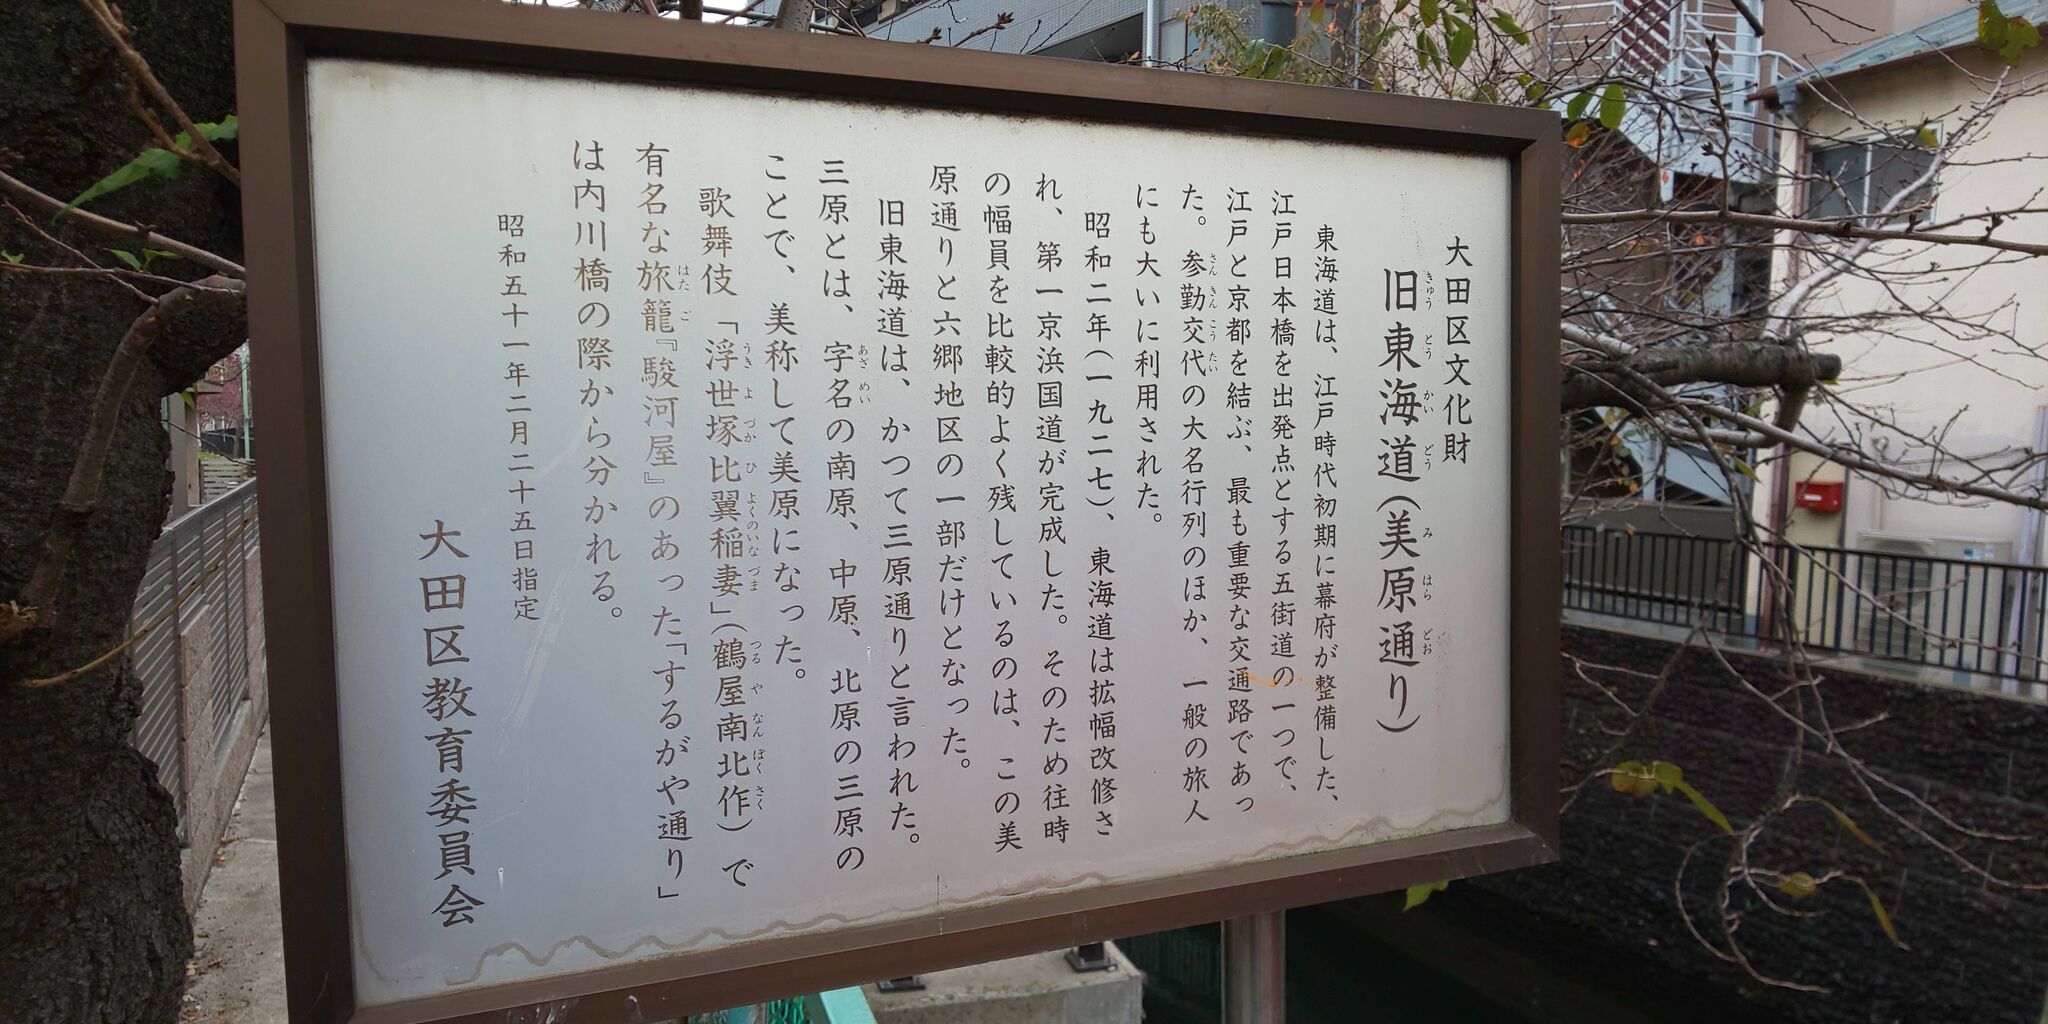 大田区文化財
旧東海道(美原通り)
東海道は、江戸時代初期に幕府が整備した、
江戸日本橋を出発点とする五街道の一つで、
江戸と京都を結ぶ、最も重要な交通路であっ
た。参勤交代の大名行列のほか、一般の旅人
にも大いに利用された。
昭和二年(一九二七)、東海道は拡幅改修さ
れ、第一京浜国道が完成した。そのため往時
の幅員を比較的よく残しているのは、この美
原通りと六郷地区の一部だけとなった。
旧東海道は、かつて三原通りと言われた。
三原とは、字名の南原、中原、北原の三原の
ことで、美称して美原になった。
歌舞伎「浮世塚比翼稲妻」(鶴屋南北作)で
有名な旅籠『駿河屋』のあった「するがや通り」
は内川橋の際から分かれる。
昭和五十一年二月二十五日指定
大田区教育委員会